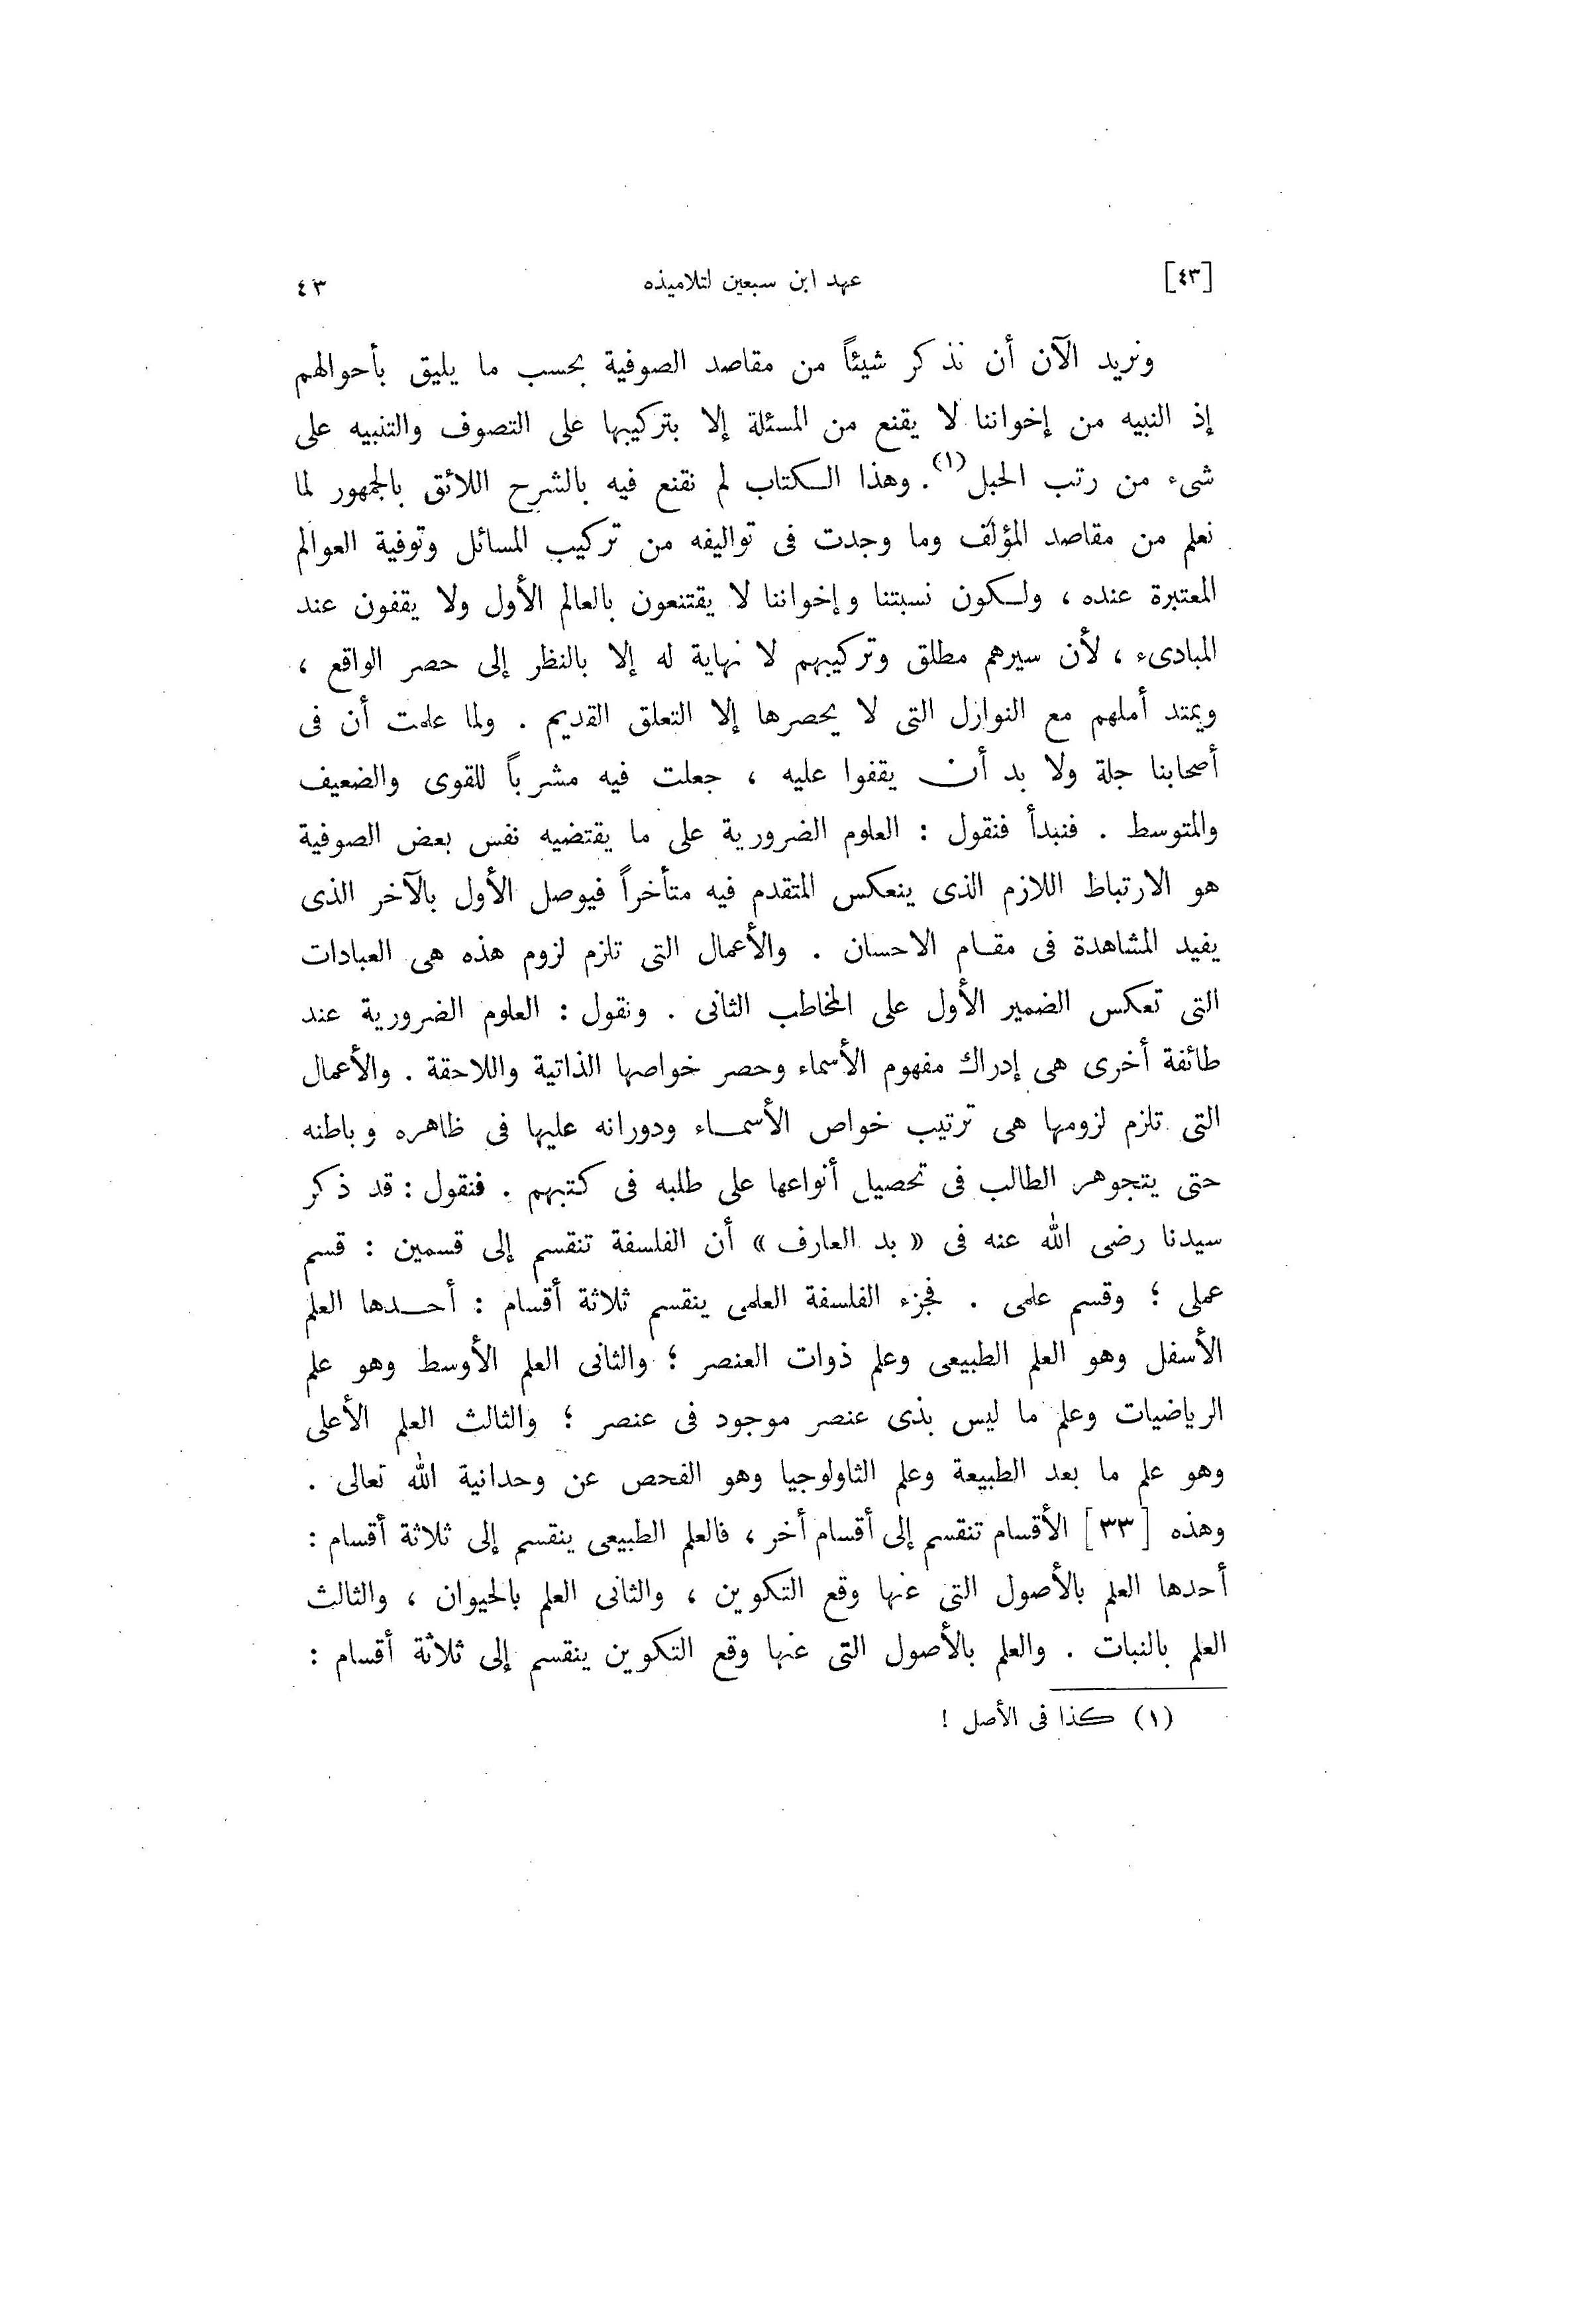 [٤٣] عهد ابن سبعين لتلاميذه ٤٣
ونريد الآن أن نذكر شيئاً من مقاصد الصوفية بحسب ما يليق بأحوالهم
إذ النبيه من إخواننا لا يقنع من المسئلة إلا بتركيبها على التصوف والتنبيه على
شىء من رتب الحبل(١). وهذا الكتاب لم نقنع فيه بالشرح اللائق بالجمهور لما
نعلم من مقاصد المؤلف وما وجدت فى تواليفه من تركيب المسائل وتوفية العوالم
المعتبرة عنده ، ولكون نسبتنا وإخواننا لا يقتنعون بالعالم الأول ولا يقفون عند
المبادىء ، لأن سيرهم مطلق وتركيبهم لا نهاية له إلا بالنظر إلى حصر الواقع ،
ويمتد أملهم مع النوازل التى لا يحصرها إلا التعلق القديم . ولما علمت أن فى
أصحابنا جلة ولا بد أن يقفوا عليه ، جعلت فيه مشرباً للقوى والضعيف
والمتوسط . فنبدأ فنقول : العلوم الضرورية على ما يقتضيه نفس بعض الصوفية
هو الارتباط اللازم الذى ينعكس المتقدم فيه متأخراً فيوصل الأول بالآخر الذى
يفيد المشاهدة فى مقام الاحسان . والأعمال التى تلزم لزوم هذه هى العبادات
التى تعكس الضمير الأول على المخاطب الثانى . ونقول : العلوم الضرورية عند
طائفة أخرى هى إدراك مفهوم الأسماء وحصر خواصها الذاتية واللاحقة . والأعمال
التى تلزم لزومها هى ترتيب خواص الأسماء ودورانه عليها فى ظاهره وباطنه
حتى يتجوهر الطالب فى تحصيل أنواعها على طلبه فى كتبهم . فنقول : قد ذكر
سيدنا رضى الله عنه فى « بد العارف » أن الفلسفة تنقسم إلى قسمين : قسم
عملى ؛ وقسم علمى . فجزء الفلسفة العلمى ينقسم ثلاثة أقسام : أحدها العلم
الأسفل وهو العلم الطبيعى وعلم ذوات العنصر ؛ والثانى العلم الأوسط وهو علم
الرياضيات وعلم ما ليس بذى عنصر موجود فى عنصر ؛ والثالث العلم الأعلى
وهو علم ما بعد الطبيعة وعلم الثاولوجيا وهو الفحص عن وحدانية الله تعالى .
وهذه [ ٣٣ ] الأقسام تنقسم إلى أقسام أخر ، فالعلم الطبيعى ينقسم إلى ثلاثة أقسام :
أحدها العلم بالأصول التى عنها وقع التكوين ، والثانى العلم بالحيوان ، والثالث
العلم بالنبات . والعلم بالأصول التى عنها وقع التكوين ينقسم إلى ثلاثة أقسام :
(١) كذا فى الأصل !